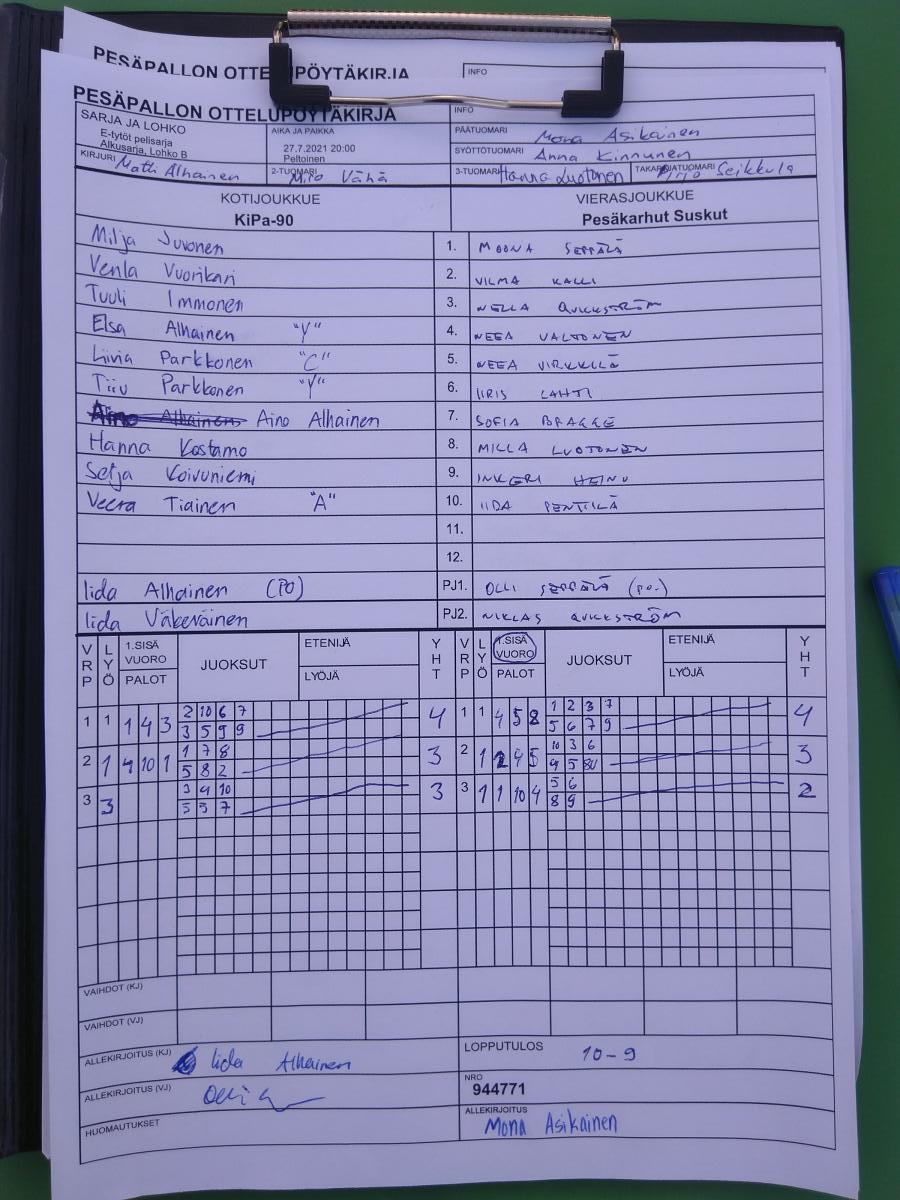 PESÄPALLON OTTELUPÖYTÄKIRJA
INFO
PESÄPALLON OTTELUPÖYTÄKIRJA
INFO
SARJA JA LOHKO
E-tytöt pelisarja
Alkusarja, Lohko B
AIKA JA PAIKKA
27.7.2021 20:00
Peltoinen
PÄÄTUOMARI Mona Asikainen
SYÖTTÖTUOMARI Anna Kinnunen
KIRJURI Matti Alhainen
2-TUOMARI Miro Vähä
3-TUOMARI Hanna Luotonen
TAKARAJATUOMARI Seikkula
KOTIJOUKKUE
KiPa-90
VIERASJOUKKUE
Pesäkarhut Suskut
Milja Juvonen 1. MOONA SEPPÄLÄ
Venla Vuorikari 2. VILMA KALLI
Tuuli Immonen 3. NELLA QVICKSTRÖM
Elsa Alhainen "Y" 4. NEEA VALTONEN
Liivia Parkkonen "C" 5. NEEA VIRKKILÄ
Tiiu Parkkonen "Y" 6. IIRIS LAHTI
Aino Alhainen Aino Alhainen 7. SOFIA BRAGGE
Hanna Kostamo 8. MILLA LUOTONEN
Selja Koivuniemi 9. INKERI HEINO
Veera Tiainen "A" 10. IIDA PENTTILÄ
11.
12.
Iida Alhainen (PO) PJ1. OLLI SEPPÄLÄ (p.o.)
Iida Väkeväinen PJ2. NIKLAS QVICKSTRÖM
VRP LYÖ 1.SISÄ VUORO PALOT JUOKSUT ETENIJÄ LYÖJÄ YHT VRP LYÖ 1.SISÄ VUORO PALOT JUOKSUT ETENIJÄ LYÖJÄ YHT
1 1 1 4 3 2 10 6 7 4 1 1 4 5 8 1 2 3 7 4
3 5 9 9 5 6 7 9
2 1 4 10 1 1 7 8 3 2 1 2 4 5 10 3 6 3
5 8 2 4 5
3 3 3 4 10 3 3 1 1 10 4 5 6 2
5 5 7 8 9
VAIHDOT (KJ)
VAIHDOT (VJ)
ALLEKIRJOITUS (KJ) Iida Alhainen
LOPPUTULOS 10-9
ALLEKIRJOITUS (VJ)
NRO
944771
HUOMAUTUKSET
ALLEKIRJOITUS
Mona Asikainen